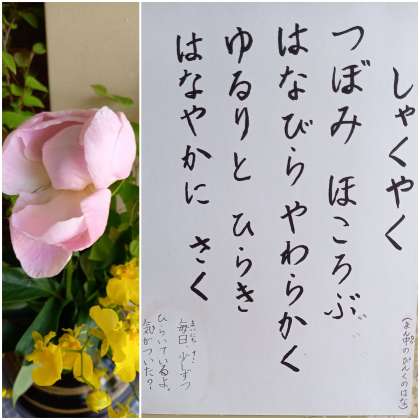 しゃくやく
(まん中のぴんくのはな)
つぼみ ほころぶ
はなびらやわらかく
ゆるりと ひらき
はなやかに さく
毎日、少しずつ
ひらいているよ。
気がついた?